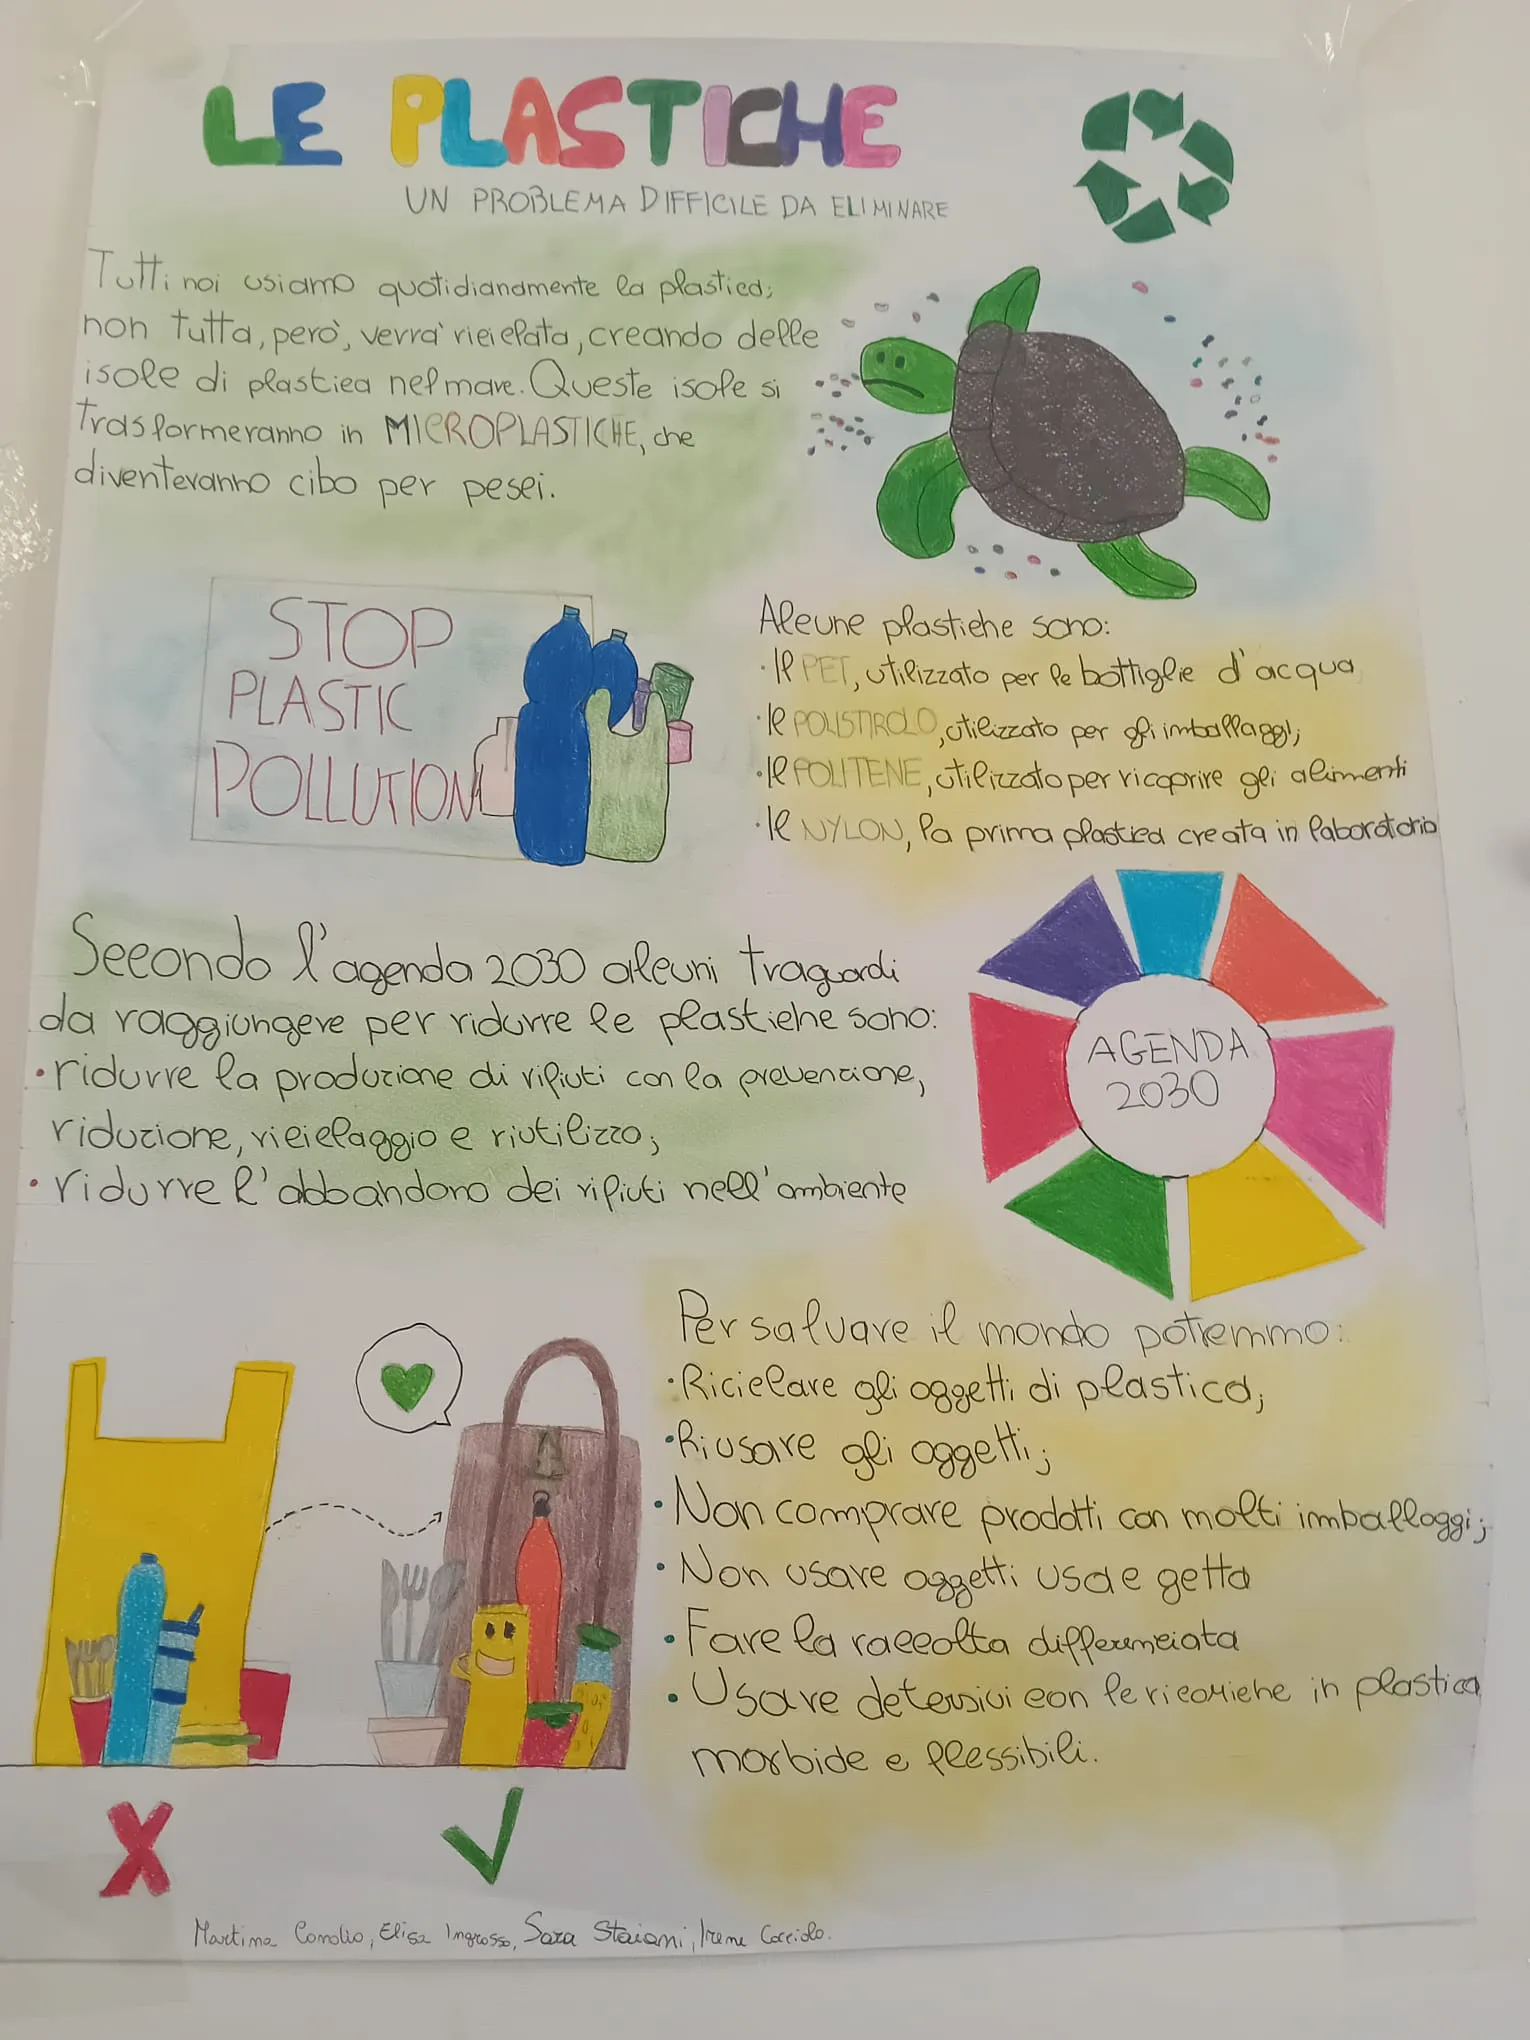 LE PLASTICHE
UN PROBLEMA DIFFICILE DA ELIMINARE
Tutti noi usiamo quotidianamente la plastica;
non tutta, però, verrà riciclata, creando delle
isole di plastica nel mare. Queste isole si
trasformeranno in MICROPLASTICHE, che
diventeranno cibo per pesci.
STOP
PLASTIC
POLLUTION
Alcune plastiche sono:
· Il PET, utilizzato per le bottiglie d'acqua
· Il POLISTIROLO, utilizzato per gli imballaggi;
· Il POLITENE, utilizzato per ricoprire gli alimenti
· Il NYLON, la prima plastica creata in laboratorio
Secondo l'agenda 2030 alcuni traguardi
da raggiungere per ridurre le plastiche sono:
· ridurre la produzione di rifiuti con la prevenzione,
riduzione, riciclaggio e riutilizzo;
· ridurre l'abbandono dei rifiuti nell'ambiente
AGENDA
2030
Per salvare il mondo potremmo:
· Riciclare gli oggetti di plastica;
· Riusare gli oggetti;
· Non comprare prodotti con molti imballaggi;
· Non usare oggetti usa e getta
· Fare la raccolta differenciata
· Usare detersivi con le ricariche in plastica
morbide e flessibili.
Martina Conolio, Elisa Ingrosso, Sara Staiani, Irene Cocciolo.